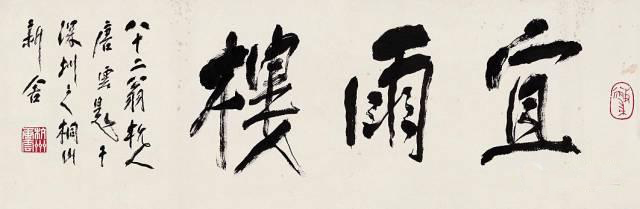 宜雨樓
八十二翁杭人
唐雲題于
深圳之桐山
新舍
杭州唐雲